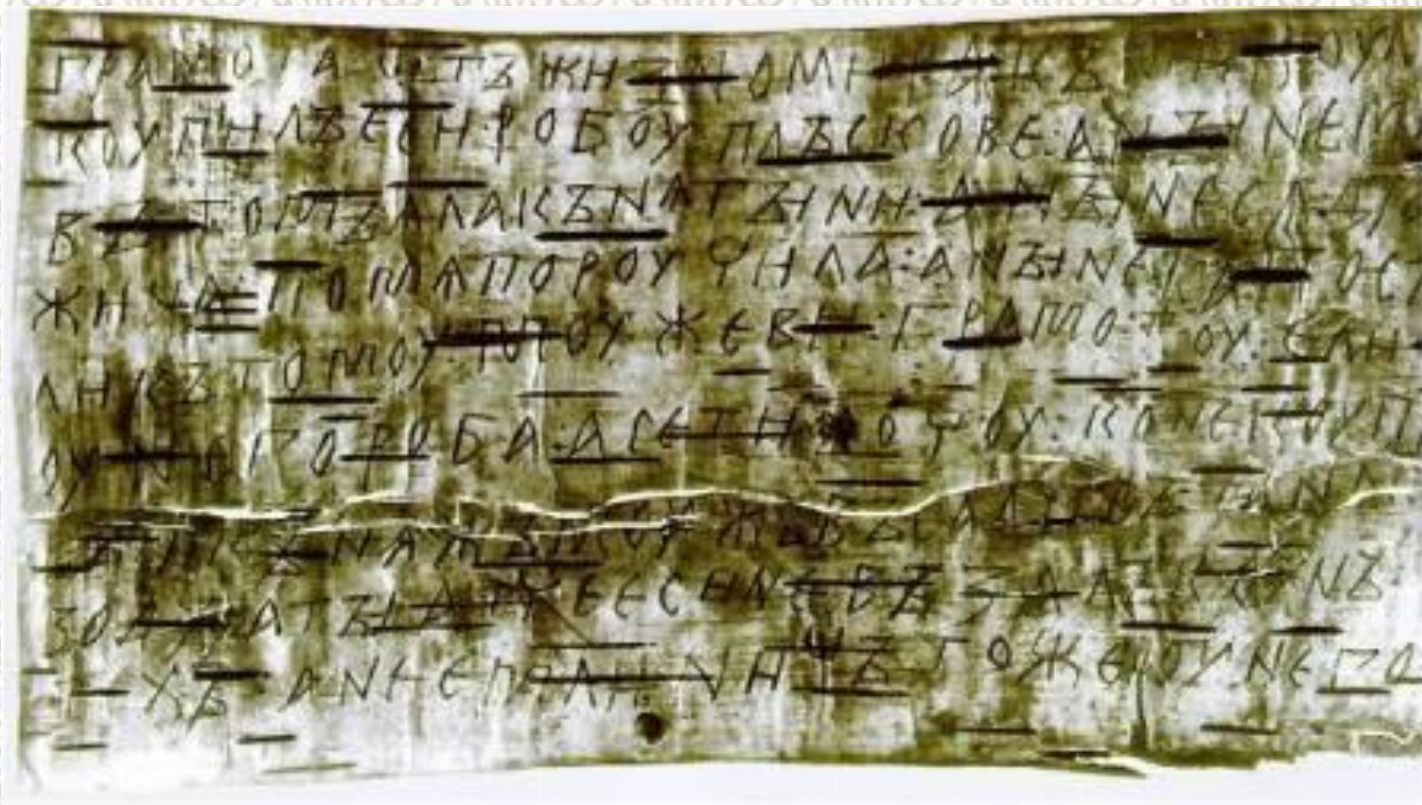 грамота ѡтъ жизномира къ микоул
коупилъ еси : робоу : плъскове : а нꙑне м
въ томъ ѧла кънѧгꙑни : а нꙑне сѧ др
жина : по мѧ пороучила : а нꙑне ка : пос
ли къ томоу моужеви : грамотоу : е ли
оу него роба : а се ти хочоу : коне коуп
и кънѧжъ моужъ въсадивъ та на
водꙑ а тꙑ атче еси не възалъ коунъ
хъ а не емли ничъто же оу него